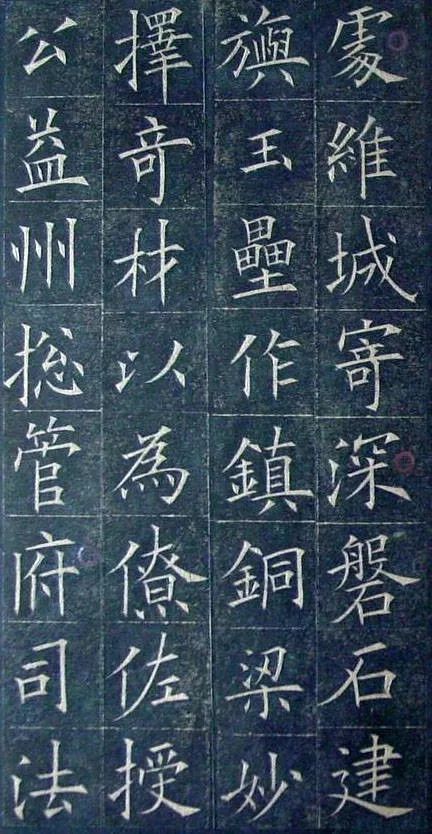 處維城寄深磐石建
旟玉壘作鎮銅梁妙
擇竒材以為僚佐授
公益州揔管府司法